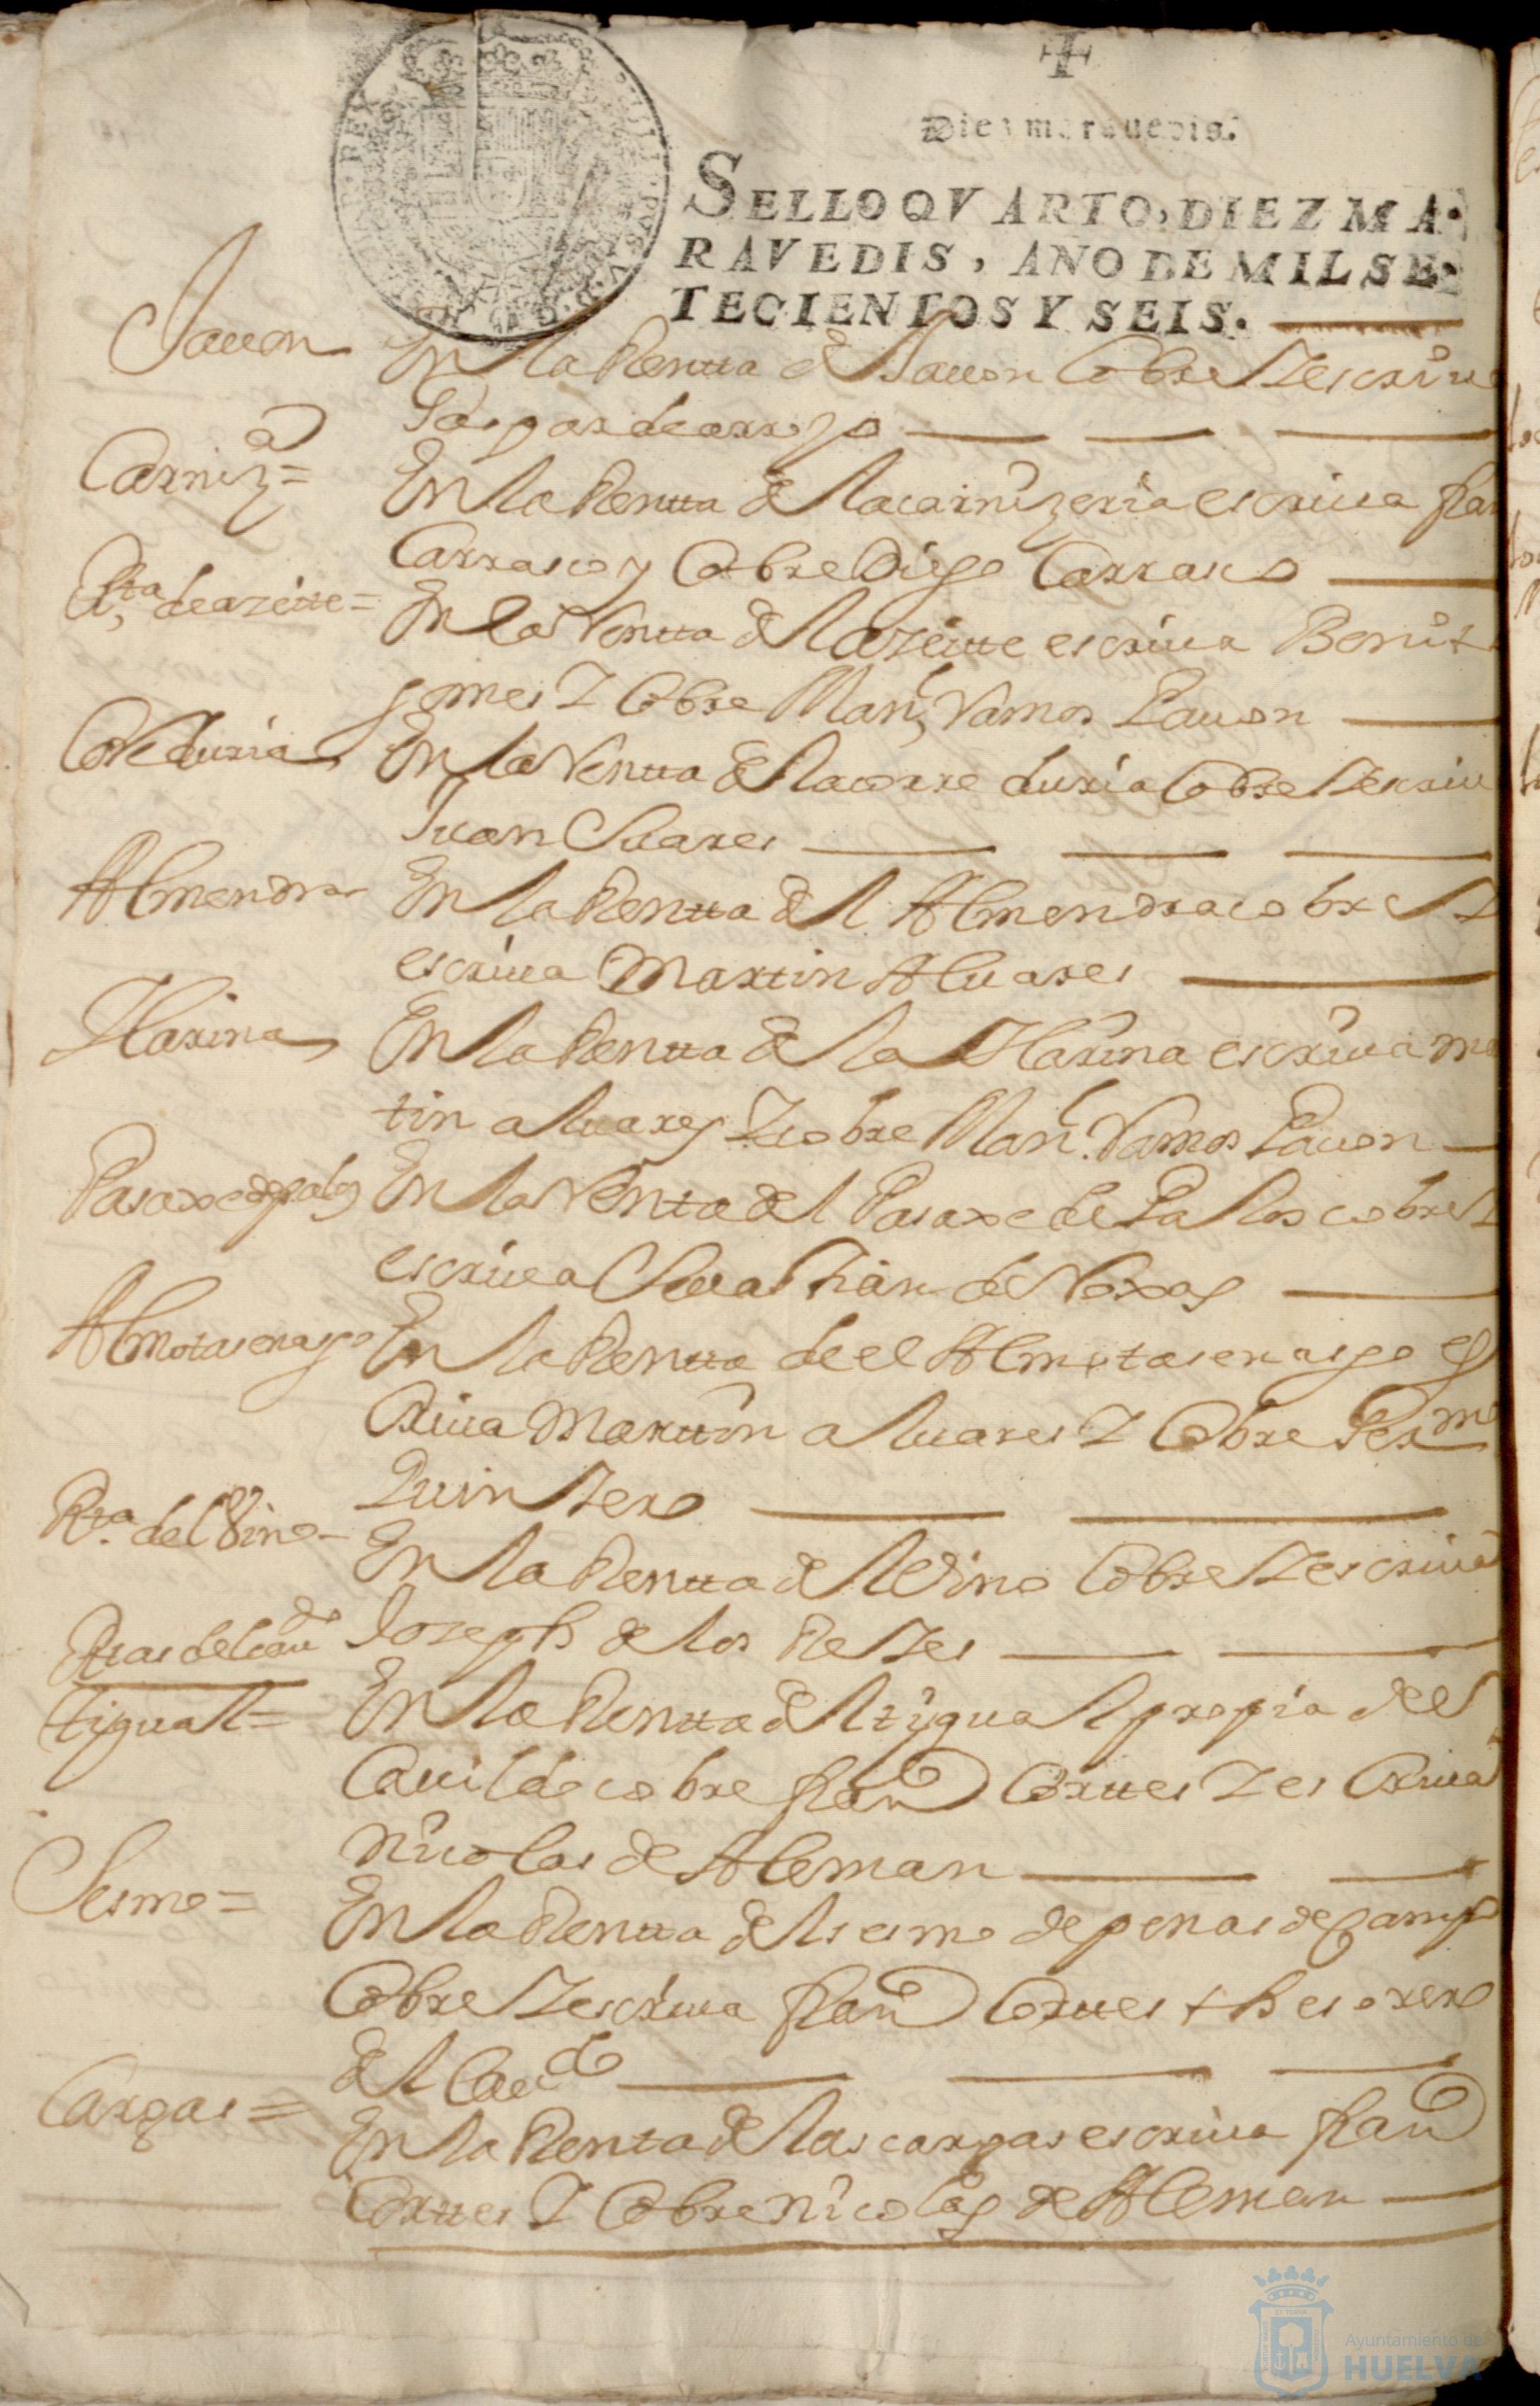 Diez marauedis.
SELLO QVARTO, DIEZ MA-
RAVEDIS, AÑO DE MIL SE-
TECIENTOS Y SEIS.
Jauon
En la Rentta de Jauon Cobre Y escriua
Gaspar de arroyo
Carniz.ª =
En la Rentta de la carnizeria escriua fran
Carrasco y Cobre Diego Carrasco
R.ta de azeitte =
En la Rentta del azeitte escriua Benit
gomes Y Cobre Man.l Ramos Pauon
Correduria
En la Rentta de la corre duria Cobre Y escriu
Juan Suares
Almendra
En la Rentta del Almendra cobre Y
escriua Martin Aluares
Harina
En la Rentta de la Harina escriua Ma
tin aluares Y cobre Man.l Ramos Pauon
Pasaxe de palos
En la Renta del Pasaxe de Palos cobre Y
escriua Seuasthian de Roxas
Almotasenasgo
En la Rentta de el Almotasenasgo es
Criua Marttin aluares Y Cobre
Quintero
R.ta del Vino
En la Rentta del Vino Cobre Y escriua
Joseph de los Reyes
Rtas del Cau.do
tigual =
En la Rentta del tigual propia del
Cauildo cobre fran.co Corttes Y es Criua
Nicolas de Aleman
Sesmo =
En la Rentta del sesmo de penas de Camp
Cobre Y escriua fran.co Corttes thesorero
del Cau.do
Cargas =
En la Renta de las cargas escriua fran.co
Corttes Y Cobre Nicolas de Aleman
Ayuntamiento de
HUELVA